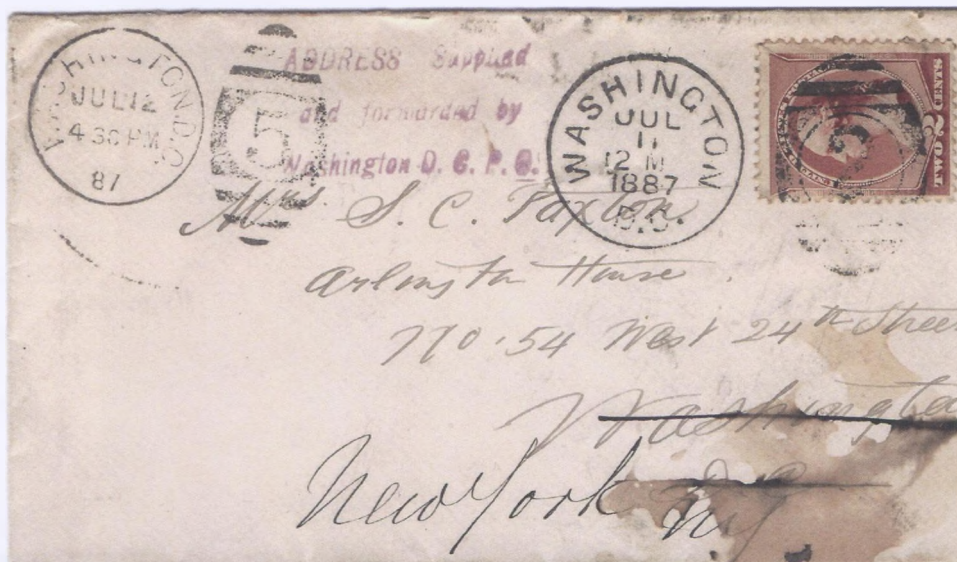 WASHINGTON. D.C.
JUL 12
4 30 PM
87
5
ADDRESS Supplied
and forwarded by
Washington D. C. P. O.
WASHINGTON
JUL
11
12 M
1887
D.C.
2
TWO CENTS
Mrs. S. C. Paxton.
Arlington House.
No. 54 West 24th Street
Washington
D.C.
New York
NY